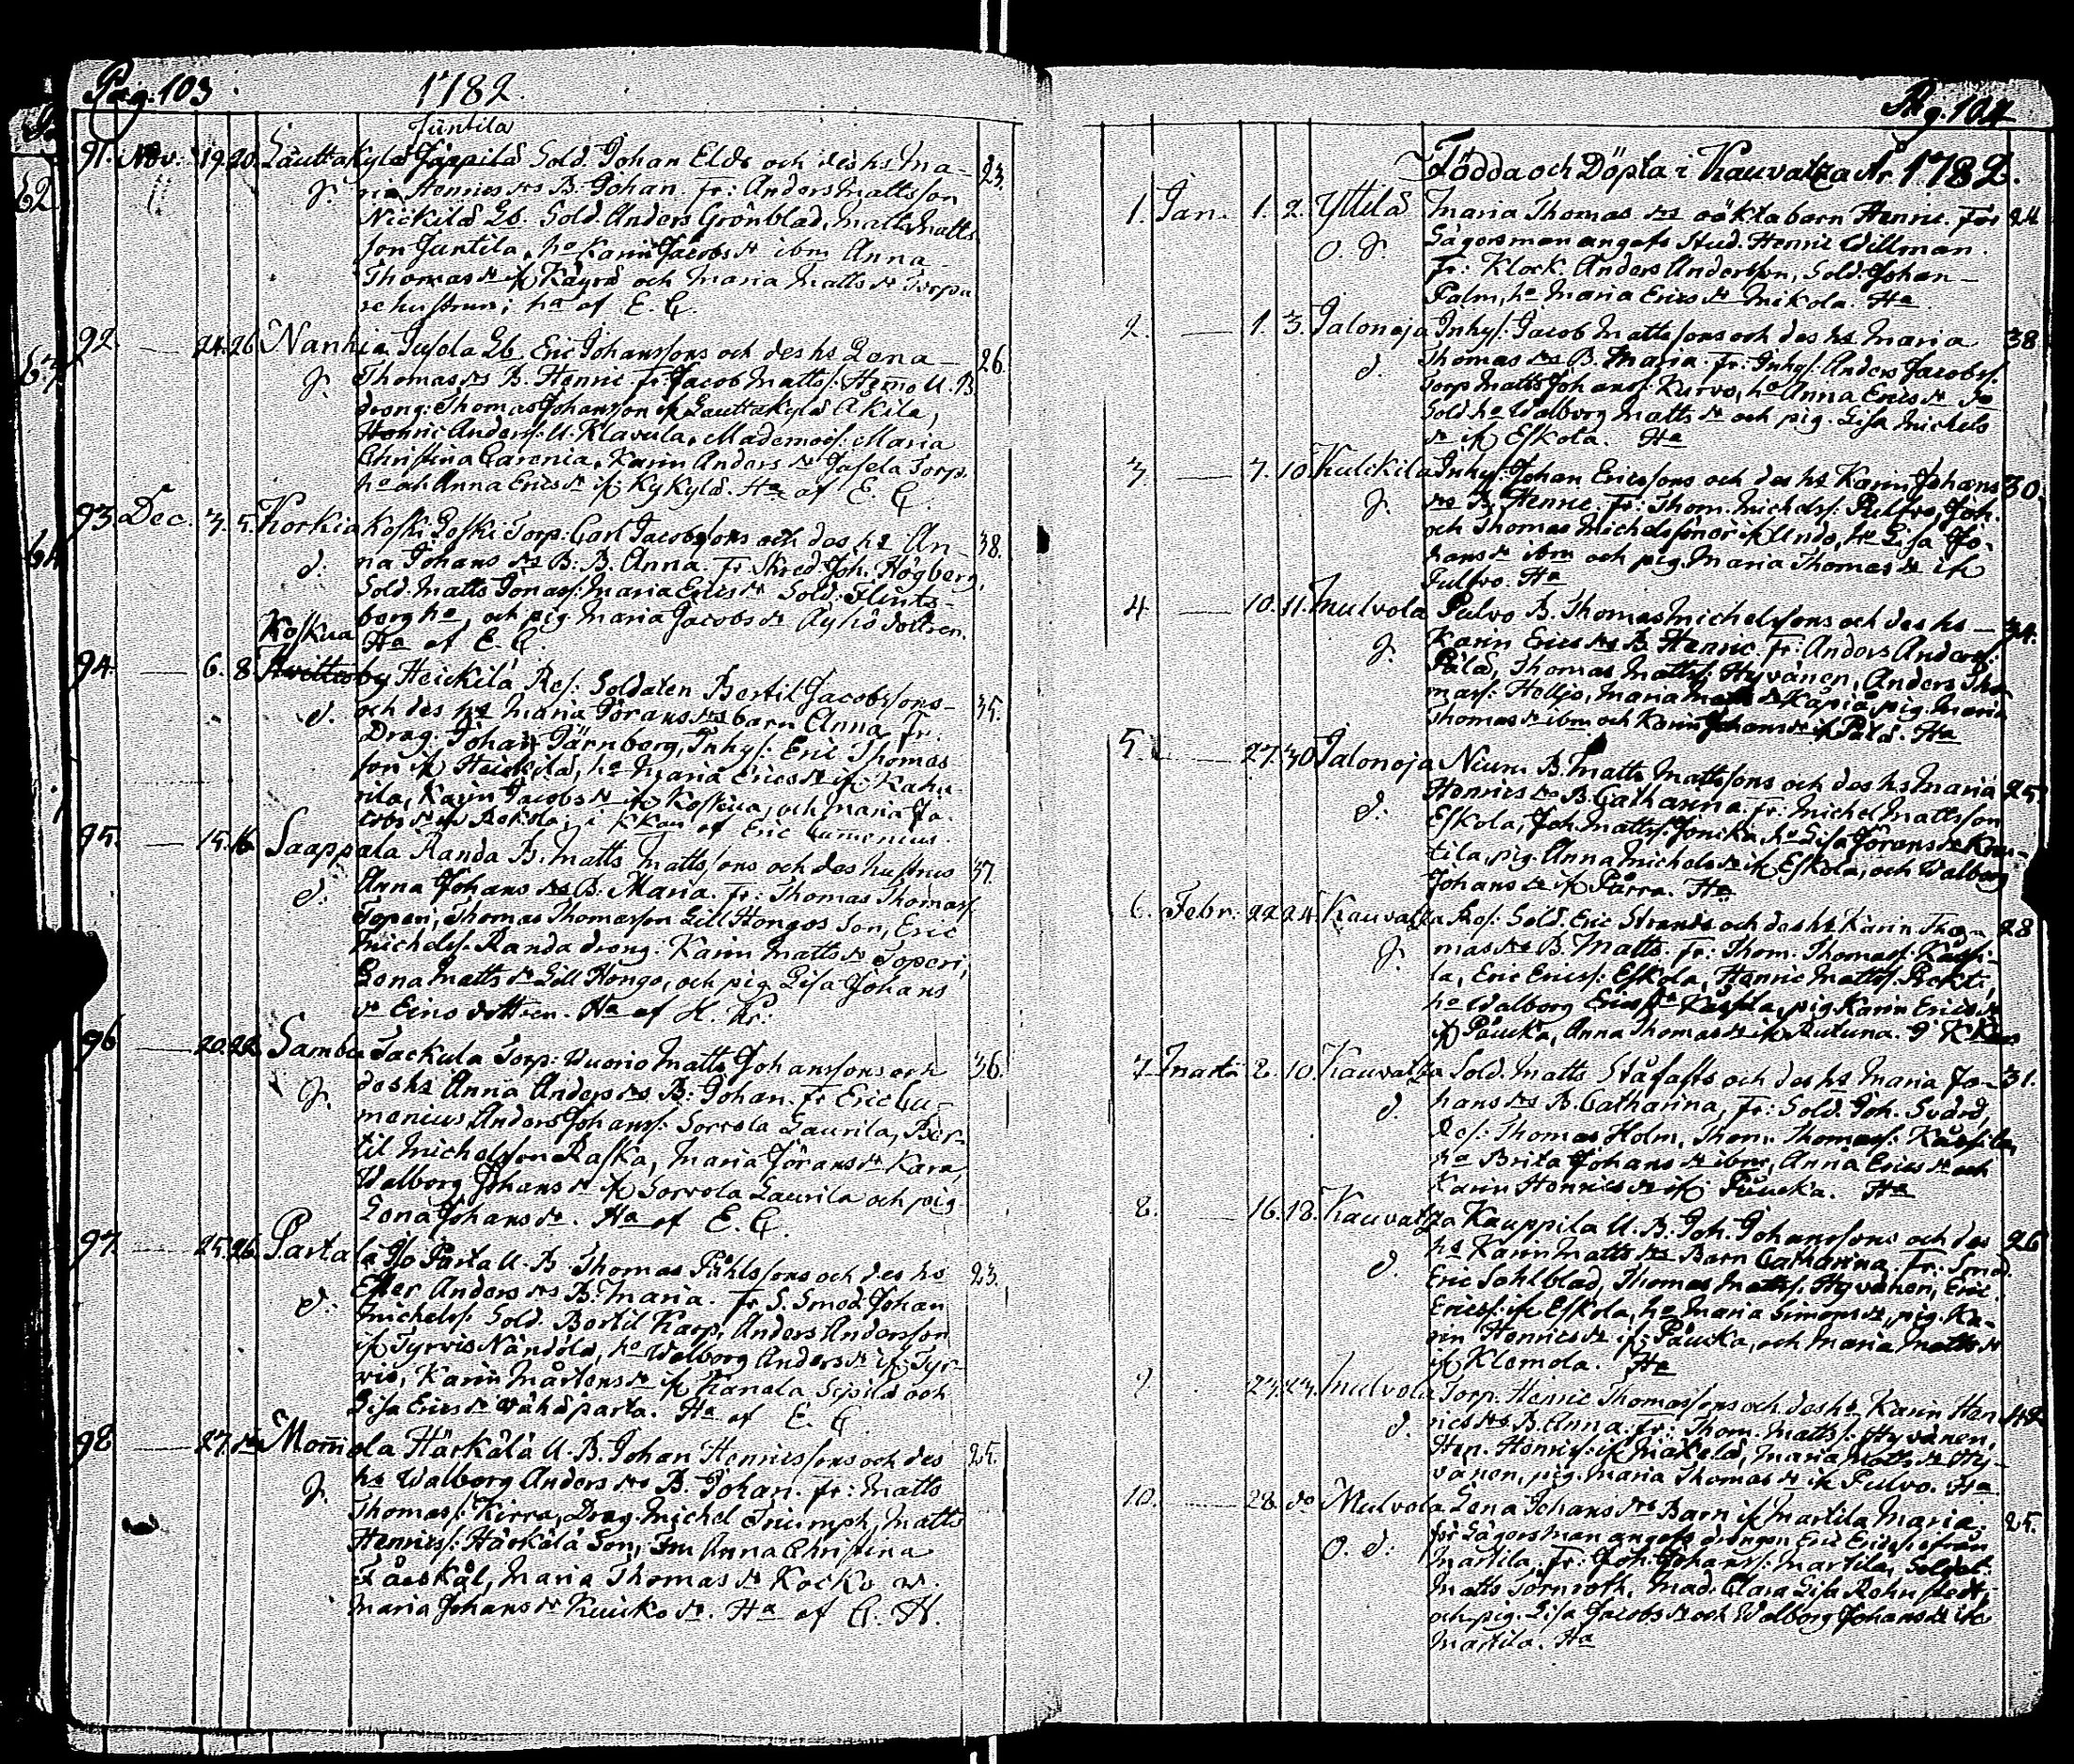 Pag. 103
1782.
Juntila
91. Nov. 19. 20. Lauttakylä Jäppilä Sold. Johan Elds och des hs Ma- 23.
g. ria Henrics drs B. Johan. Fr: Anders Mattsson
Nickilä Lb. Sold. Anders Grönblad, Matts Matts
son Juntila, ho Karin Jacobs dr ibm Anna
Thomas dr ifr Käyrä och Maria Matts dr Torpa
re hustrun; ha af E. C.
92. — 24. 26 Nanhia Jusola Lb. Eric Johanssons och des hs Lena 26.
g. Thomas drs B. Henric. Fr: Jacob Mattss: Hemo U. B.
dräng: Thomas Johansson ifr Lauttakylä Akila,
Henric Anderss: U. Klavula, Mademois: Maria
Christina Carenia, Karin Anders dr Jusela Torp.
ho ah Anna Erics dr ifr: Kykylä. Ha af E. C.
93 Dec. 3. 5. Korkiakoski Koski Torp: Carl Jacobssons och des hs An- 38.
d. na Johans drs B: B. Anna. Fr: Skred. Joh. Högberg,
Sold. Matts Jonass: Maria Erics dr Sold. Flints-
berg ho, och pig. Maria Jacobs dr Äyhö dottren.
Koskua Ha af E. C.
94. — 6. 8. Hvittisby Heickilä Res: Soldaten Bertil Jacobssons 35.
d. och des hs Maria Görans drs barn Anna Fr.
Drag. Johan Järnberg, Inhys: Eric Thomas
son ifr Heickilä, ho Maria Erics dr ifr Kahu
rila, Karin Jacobs dr ifr Koskua, och Maria Ja-
cobs dr ifr i KKan af Eric Cumenius.
95. — 15. 16. Saappala Randa B. Matts Mattssons och des hustrus 37.
d. Anna Johans drs B: Maria. Fr: Thomas Thomass.
Toperi, Thomas Thomasson Lill Hongos son, Eric
Michelss: Randa dräng: Karin Matts dr Toperi,
Lena Matts dr Lill Hongo, och pig. Lisa Johans
dr Eino dottren. Ha af H. Kr:
96 — 20. 22. Sambu Tackula Torp: Wuorio Matts Johanssons och 36.
g. des hs Anna Anders drs B: Johan. Fr Eric Cu-
menius Anders Johanss: Sorrola Laurila, Ber-
til Michelsson Raska, Maria Jörans dr Kara,
Walborg Johans dr ifr Sorvola Laurila och pig.
Lena Johans dr. Ha af E. C.
97. — 25. 26. Partala Iso Parta U. B. Thomas Påhlssons och des hs 23.
d. Ester Anders drs B: Maria. Fr S. Smed. Johan
Michelss: Sold. Bertil Karp, Anders Andersson
ifr Tyrvis Nändölä, ho Walborg Anders dr ifr: Tyr-
vis, Karin Mårtens dr ifr Kanala Sipilä och
Lisa Erics dr Vähäparta. Ha af E. C.
98 — 27. Mommola Härkälä U. B. Johan Henricssons och des 25.
g. hs Walborg Anders drs B. Johan. Fr: Matts
Thomass: Kirra, Drag. Michel Triumph, Matts
Henricss: Härkälä Son, Fru Anna Christina
Fåeskål, Maria Thomas dr Kocko w.
Maria Johans dr Kuicko dr. Ha af A. H.
Pag. 104
Födda och Döpta i Kauvatza År 1782.
1. Jan. 1. 2. Yttilä Maria Thomas drs oäkta barn Henric. För 24
o. g. Lägersman angafs Stud. Henric Willman.
Fr: Klock. Anders Andersson, Sold. Johan
Palm, ho Maria Erics dr Mikola. Ha
2. — 1. 3. Jalonoja Inhys: Jacob Mattssons och des hs Maria 38
d. Thomas drs B. Maria. Fr: Inhys: Anders Jacobss.
Torp. Matts Johanss: Kurvo, ho Anna Erics dr do
Sold. ho Walborg Matts dr och pig. Lisa Michels
dr ifr Eskola. Ha
3 — 7. 10. Kulckila Inhys: Johan Ericssons och des hs Karin Johans 30
g. drs B. Henric. Fr: Thom. Michelss: Pulfvo, Joh.
och Thomas Michelssöner ifr Undo, ho Lisa Jo-
hans dr ibm och pig. Maria Thomas dr ifr
Pulfvo. Ha
4 — 10. 11. Mulvola Pulvo B. Thomas Michelssons och des hs 34.
g. Karin Erics drs B. Henric. Fr: Anders Anderss:
Pälä, Thomas Mattss: Hyvänen, Anders Tho-
mass: Heljo, Maria Matts dr Kåpiä, pig. Maria
Thomas dr ibm och Karin Johans dr ifr Pälä. Ha
5. — 27. 30. Jalonoja Niuru B. Matts Mattssons och des hs Maria 25.
d. Henrics drs B. Catharina. Fr: Michel Mattsson
Eskola, Joh. Mattss: Jonicka, ho Lisa Jörans dr
tila, pig. Anna Michels dr ifr Eskola, och Walborg
Johans dr ifr Pärra. Ha
6. Febr: 22. 24. Kauvatza Res: Sold. Eric Strands och des hs Karin Tho- 28
g. mas drs B. Matts. Fr: Thom. Thomass:
la, Eric Ericss: Eskola, Henric Mattss: Prokti,
ho Walborg Erics dr pig. Karin Erics dr
ifr Påucka, Anna Thomas dr ifr Rutuna. I KKan
7. Marti 8. 10. Kauvatza Sold. Matts Ståfasts och des hs Maria Jo- 31.
d. hans drs B. Catharina, Fr: Sold. Joh. Svärd,
Res: Thomas Holm, Thom. Thomass:
ho Brita Johans dr ibm, Anna Erics dr och
Karin Henrics dr ifr Påucka. Ha
8. — 16. 18. Kauvatza Kauppila U. B. Joh. Johanssons och des 26
d. hs Karin Matts drs Barn Catharina. Fr: Smed.
Eric Sahlblad, Thomas Mattss: Hyvänen, Eric
Ericss: ifr Eskola, ho Maria Simons dr, pig. Ka-
rin Henrics dr ifr: Påucka, och Maria Matts dr
ifr Klemola. Ha
9. Mulvola Torp. Henric Thomassons och des hs Karin Hen 42
d. rics drs B. Anna. Fr: Thom. Mattss: Hyvänen,
Hen. Henricss: ifr Mäkelä, Maria Matts dr Hy-
vänen, pig. Maria Thomas dr ifr Pulvo. Ha
10. — 28. do Mulvola Lena Johans drs Barn ifr Martila Maria. 25.
o. d: för Lägersman angafs drängen Eric Ericss: ifrån
Martila. Fr: Joh. Johanss: Martila, Soldat:
Matts Törnroth, Mad. Clara Lisa Rehnstedt,
och pig. Lisa Jacobs dr och Walborg Johans dr ifr
Martila. Ha